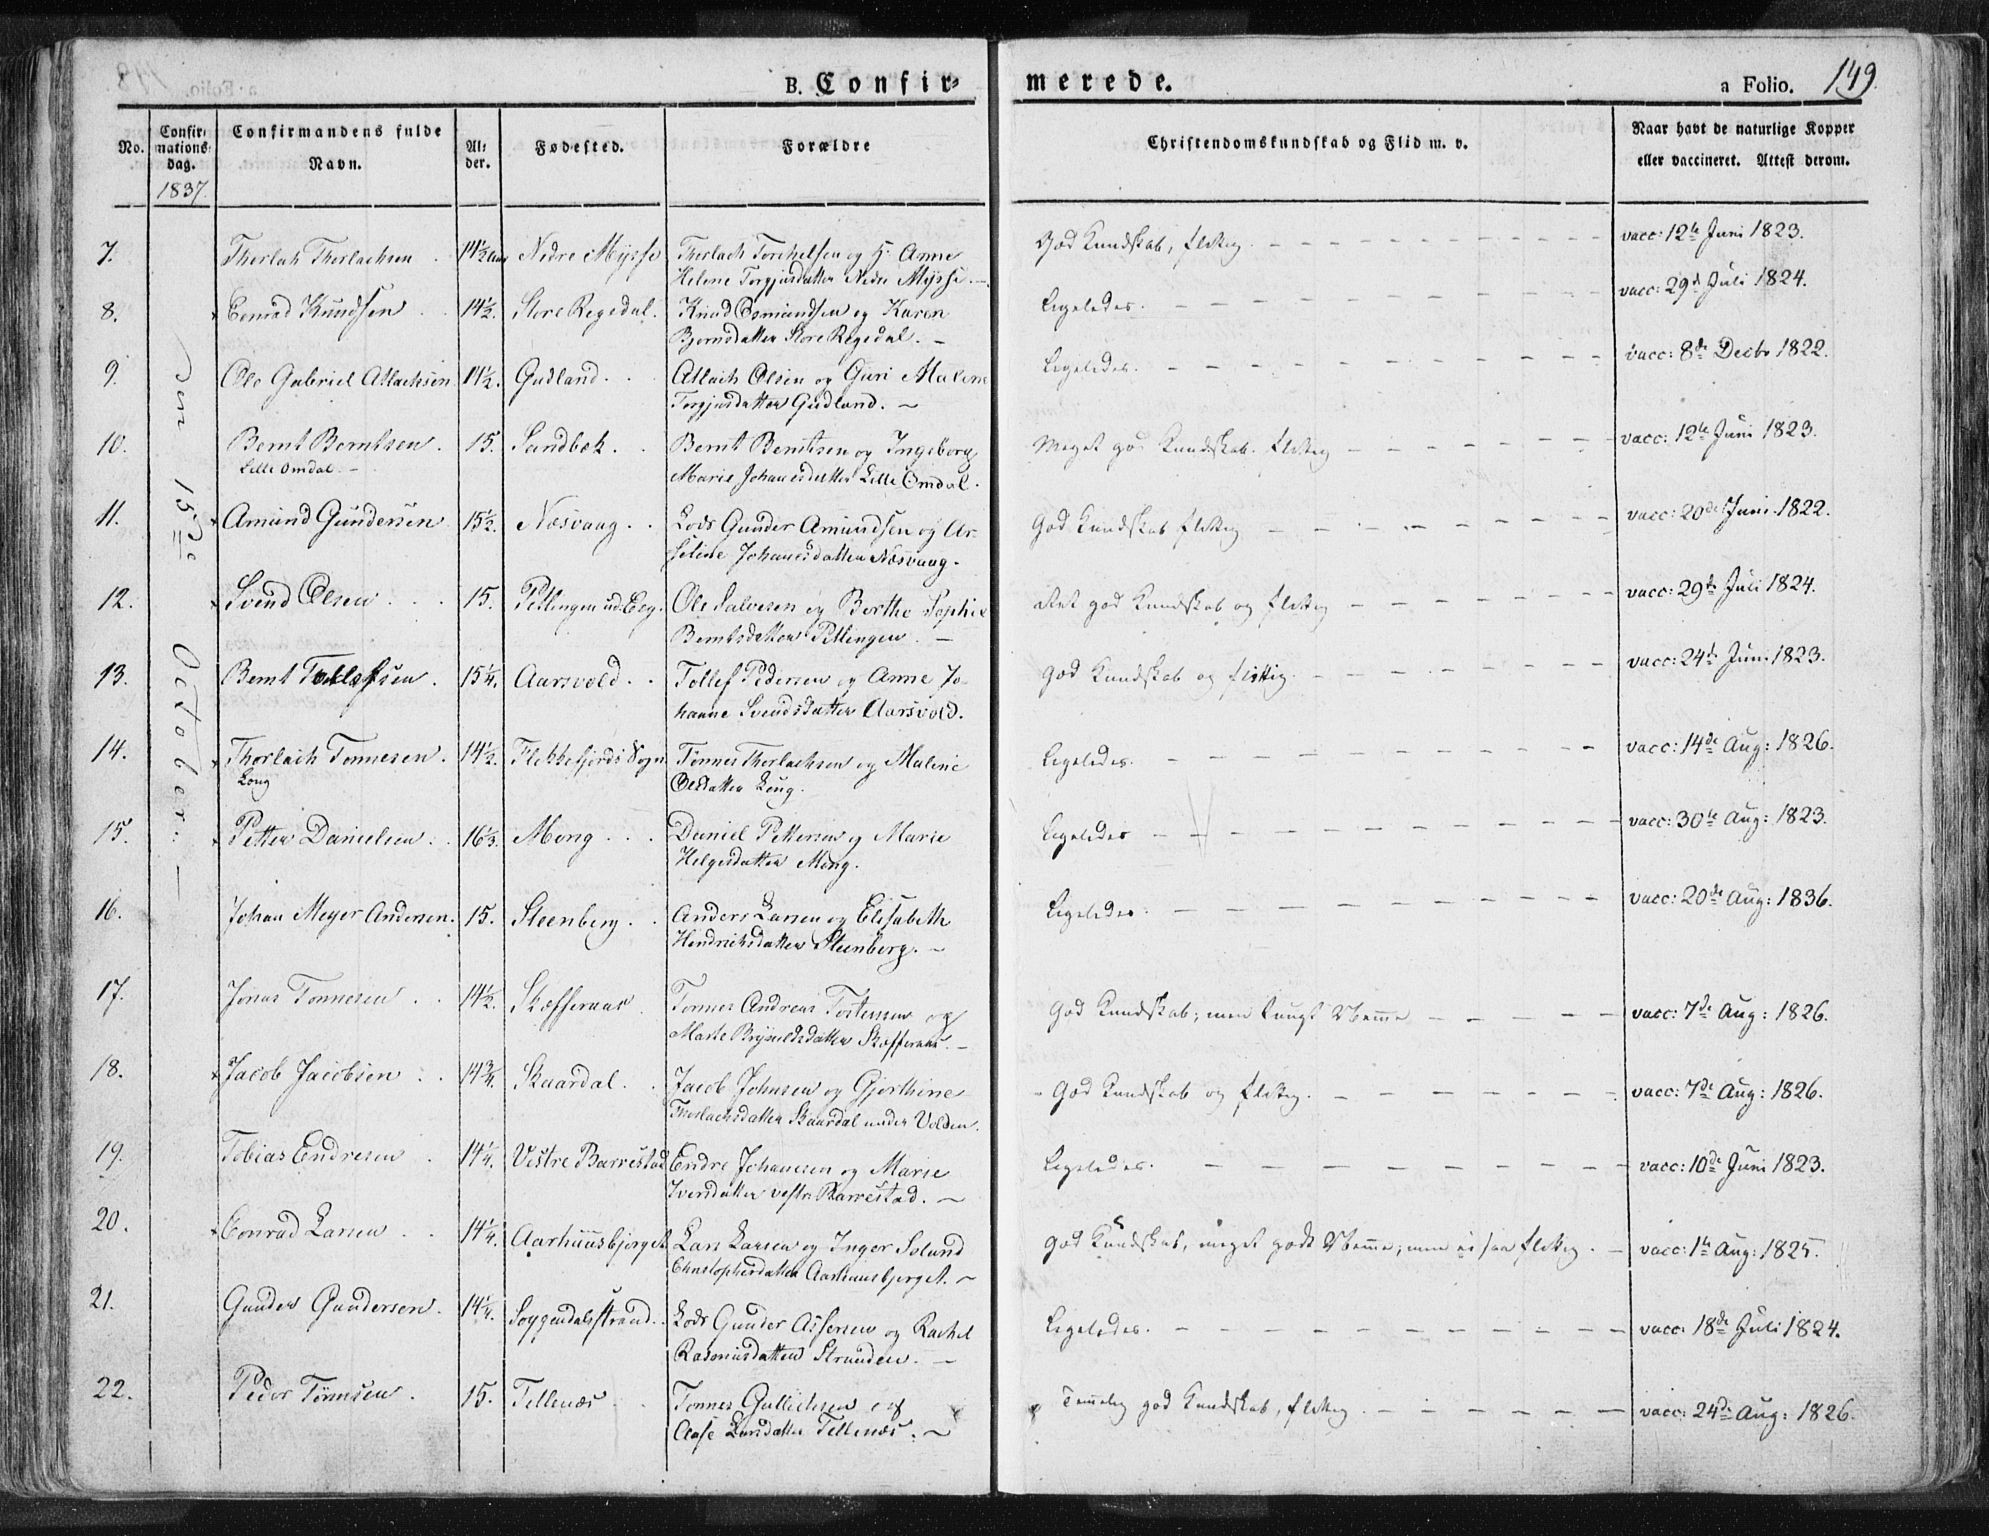 B. Confir-
merede.
a Folio. 149.
No.
Confir-
mations-
dag.
1837.
Confirmandens fulde
Navn.
Al-
der.
Fødested.
Forældre
Christendomskundskab og Flid m. v.
Naar havt de naturlige Kopper
eller vaccineret. Attest derom.
Den 15de October. —
7. Thorlak Thorlachsen . 14½ Aar Nedre Mysse Thorlach Torchelsen og H. Anne God Kundskab, flittig. vacc: 12te Juni 1823.
Helene Torgjusdatter Nedre Mysse. —
8. Conrad Knudsen . . 14½. Store Regedal. Knud Osmundsen og Karen Ligeledes. vacc: 29de Juli 1824.
Bjornsdatter Store Regedal. —
9. Ole Gabriel Atlachsen 14½. Gudland. . . Atlach Olsen og Guri Malene Ligeledes. vacc: 8de Decbr 1822.
Torgjusdatter Gudland. —
10. Bernt Berntsen . 15. Sandbek. . Bernt Berntsen og Ingeborg Meget god Kundskab. flittig vacc: 12te Juni 1823.
Lille Omdal. —
Marie Johanesdatter Lille Omdal.
11. Amund Gundersen 15½. Næsvaag. . . Lods Gunder Amundsen og As- God Kundskab flittig vacc: 20de Juni 1822.
seline Johanesdatter Næsvaag.
12. Svend Olsen . . . 15. Pettingen ud. Eeg. Ole Salvesen og Berthe Sophie god Kundskab og flittig vacc: 29de Juli 1824.
Berntsdatter Pettingen. —
13. Bernt Tollefsen . 15¼. Aarsvold. . . Tollef Pedersen og Anne Jo- God Kundskab og flittig. vacc: 24de Juni 1823.
hanne Svendsdatter Aarsvold.
14. Thorlach Tonnesen . 14½. Flekkefjords Sogn. Tønnes Thorlachsen og Malene Ligeledes. vacc: 14de Aug: 1826.
Long
Olsdatter Long.
15. Petter Danielsen . . 16⅓. Mong . . . Daniel Pettersen og Marie Ligeledes vacc: 30te Aug: 1823.
Helgesdatter Mong.
16. Johan Meyer Andersen. 15. Steenberg . . Anders Larsen og Elisabeth Ligeledes. vacc: 20de Aug: 1836.
Hendrichsdatter Steenberg. —
17. Jonas Tonnesen . . 14½. Skæfferaas Tonnes Andreas Tostensen og God Kundskab; men tungt Nemme vacc: 7de Aug: 1826.
Marte Skæfferaas. —
18. Jacob Jacobsen . . 14¾. Skaardal. . Jacob Johnsen og Gjorthine God Kundskab og flittig. vacc: 7de Aug: 1826.
Thorlachsdatter Skaardal under Volden.
19. Tobias Endresen . 14¼. Vestre Barrestad Endre Johanesen og Marie Ligeledes. vacc: 10de Juni 1823.
Iversdatter vestre Barrestad. —
20. Conrad Larsen . . 14¼. Aarhuusbjerget Lars Larsen og Inger God Kundskab, meget godt Nemme; men ei saa flittig. vacc: 1te Aug: 1825.
Christophersdatter Aarhuusbjerget. —
21. Gunder Gundersen . 14¼. Soggendalsstrand. Lods Gunder Assersen og Rachel Ligeledes. vacc: 18de Juli 1824.
Rasmusdatter Stranden. —
22. Peder Tønnesen . 15. Tellenæs . Tonnes Gullichsen og Temmelig god Kundskab, flittig vacc: 24de Aug: 1826.
Aase Larsdatter Tellenæs. —